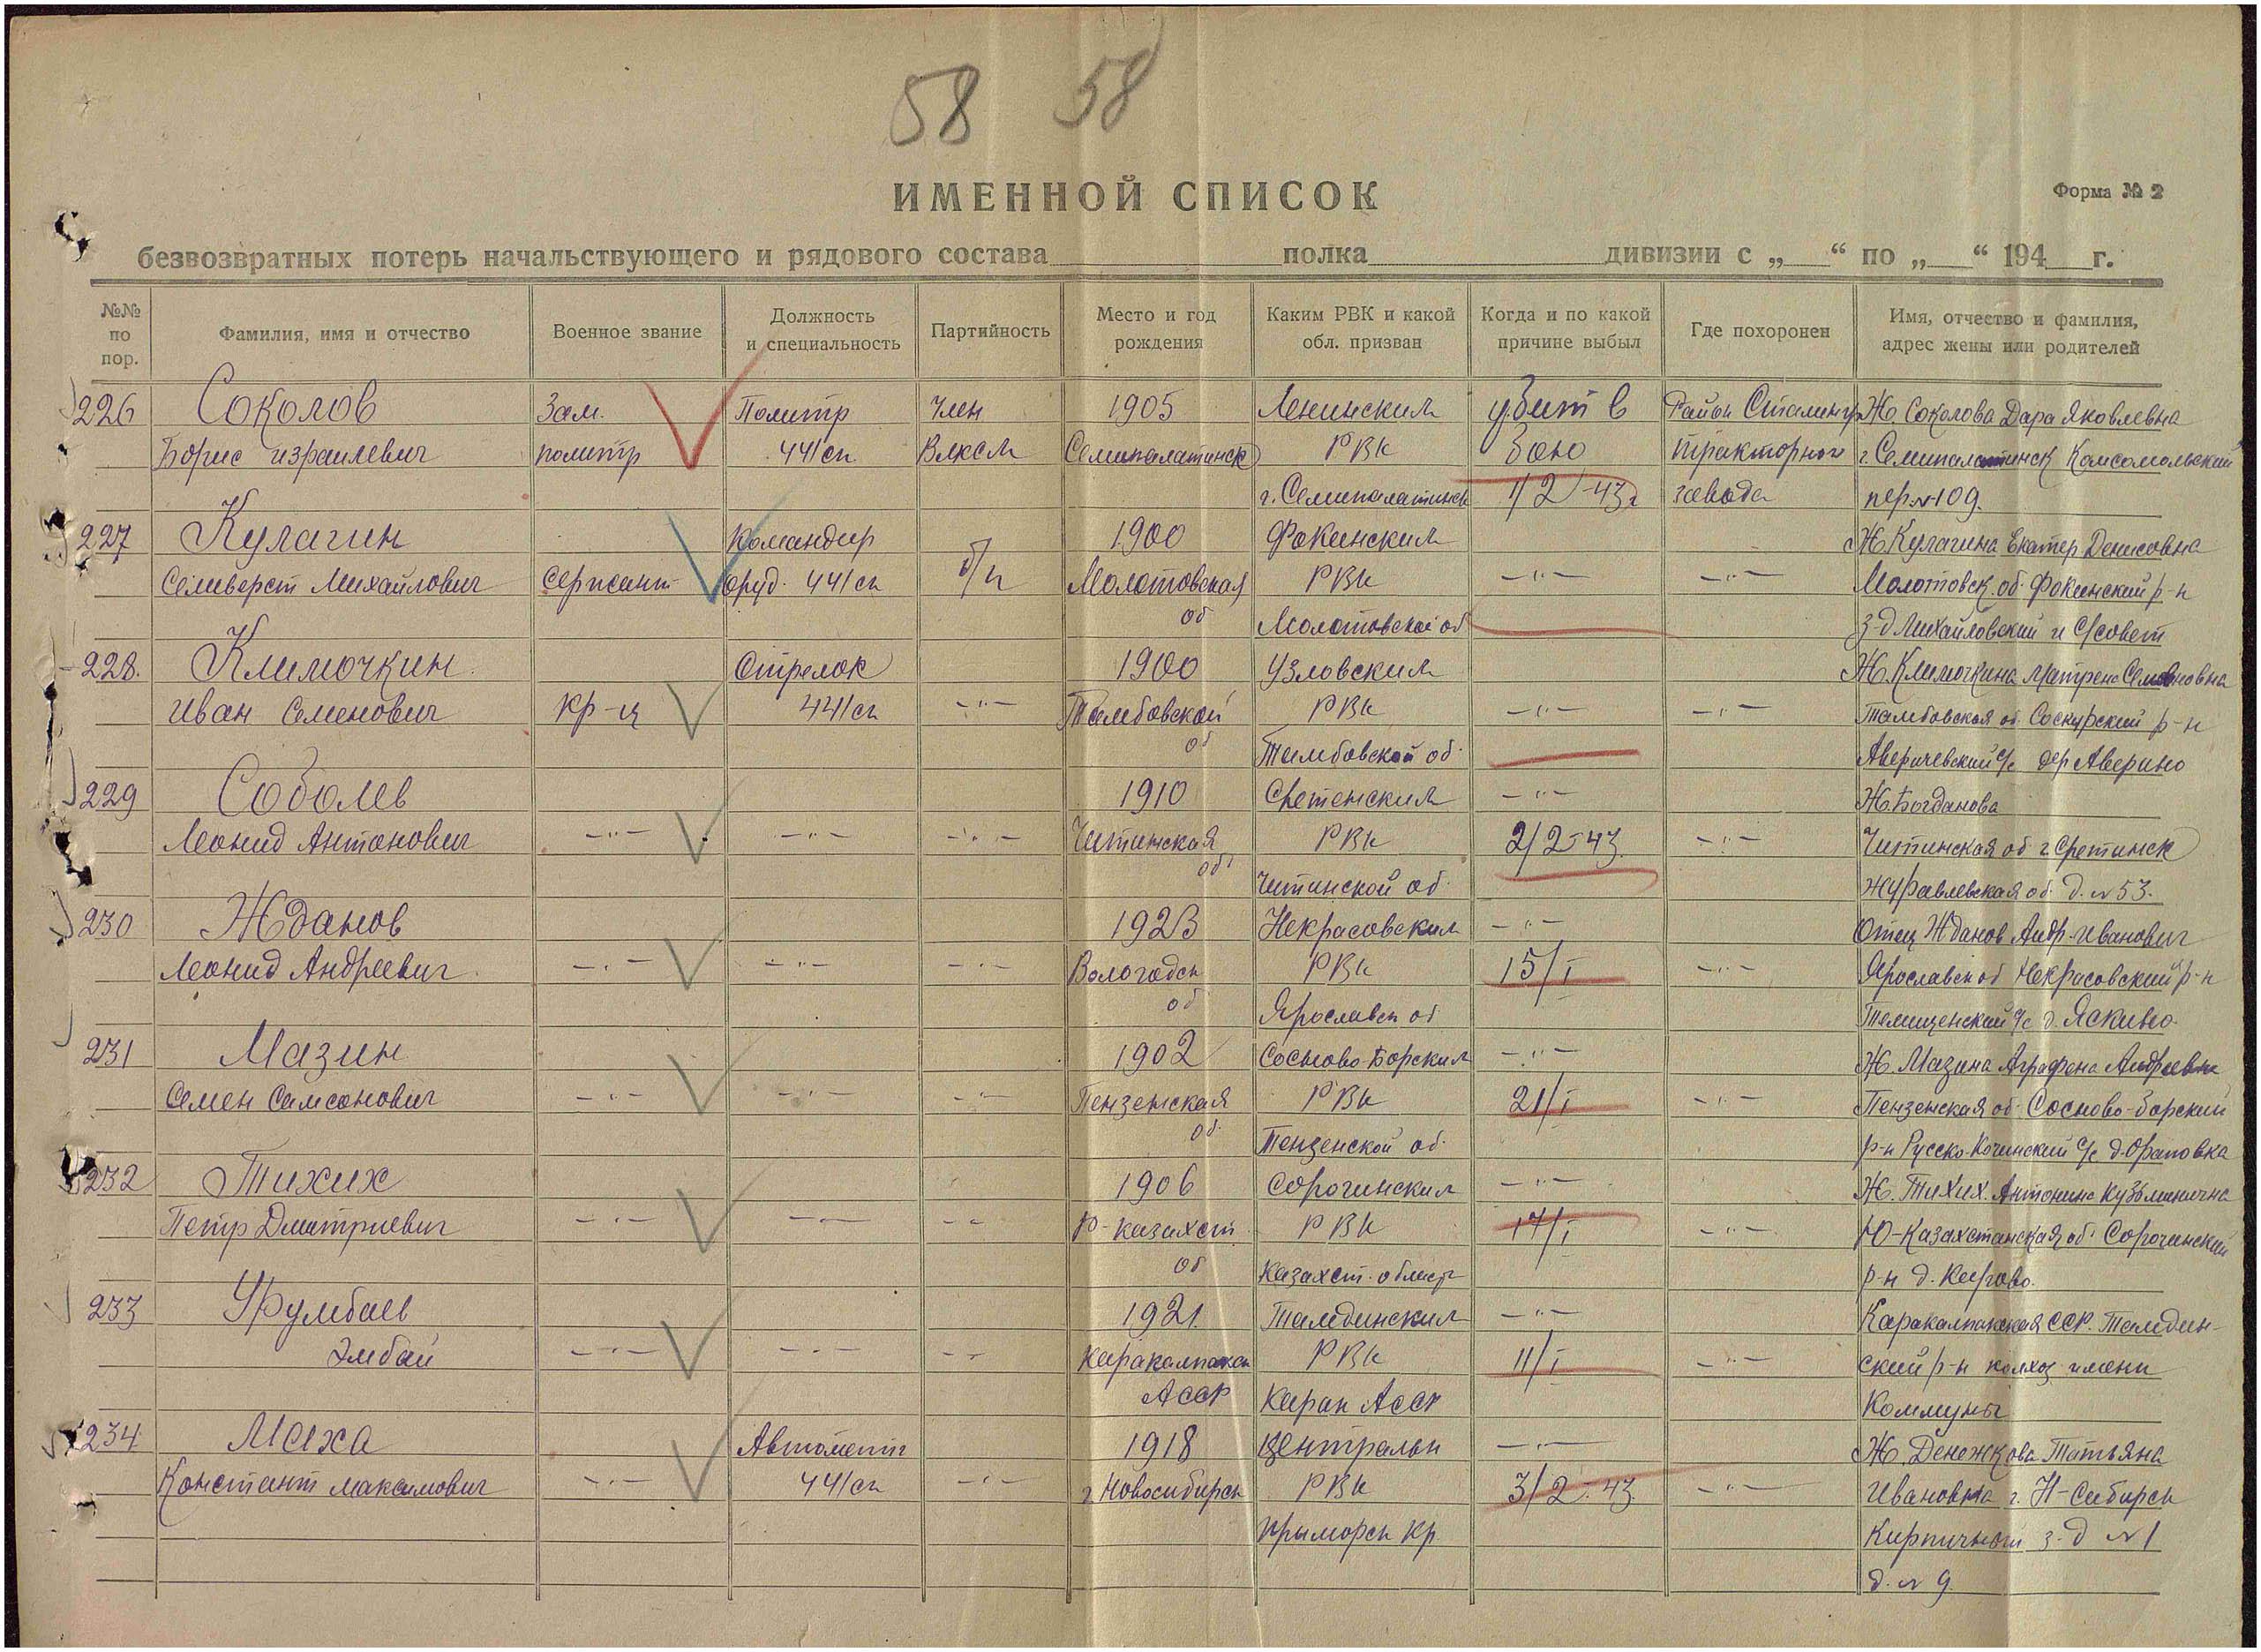 58 58
ИМЕННОЙ СПИСОК
Форма № 2
безвозвратных потерь начальствующего и рядового состава полка дивизии с „ “ по „ “ 194 г.
№№ по пор. Фамилия, имя и отчество Военное звание Должность и специальность Партийность Место и год рождения Каким РВК и какой обл. призван Когда и по какой причине выбыл Где похоронен Имя, отчество и фамилия, адрес жены или родителей
226 Соколов Зам. Политр Член 1905 Ленинским убит в Район Сталингр Ж. Соколова Дара Яковлевна
Борис Израилевич политр 441 сп. Влксм Семипалатинск РВК бою тракторного г. Семипалатинск Комсомольский
г. Семипалатинск 1/2-43г завода пер № 109.
227 Кулагин Командир 1900 Фокинским Ж. Кулагина Екатер Денисовна
Селиверст Михайлович Сержант оруд. 441 сп б/п Молотовская РВК —"— —"— Молотовск. об. Фокинский р-н
об Молотовской об З-д Михайловский п С/совет
228. Климочкин Стрелок 1900 Узловским Ж. Климочкина Матрена Семеновна
Иван Семенович Кр-ц 441 сп —"— Тамбовской РВК —"— —"— Тамбовская об. р-н
об Тамбовской об. с/с дер Аверино
229 Соболев 1910 Сретенским —"— Ж. Богданова
Леонид Антонович —"— —"— —"— Читинская РВК 2/2-43. —"— Читинская об г. Сретинск
об. Читинской об. Журавлевская об. д. № 53.
230 Жданов 1923 Некрасовским —"— Отец Жданов Андр. Иванович
Леонид Андреевич —"— —"— —"— Вологодск РВК 15/I —"— Ярославск об Некрасовский р-н
об Ярославск об с/с д. Яскино.
231 Мазин 1902 Сосново-Борским —"— Ж. Мазина Аграфена Андреевна
Семен Самсонович —"— —"— —"— Пензенская РВК 21/I —"— Пензенская об. Сосново-Борский
об. Пензенской об. р-н Русско-Качинский с/с
232 Тихих 1906 Сорочинским —"— Ж. Тихих. Антонина Кузьминична
Петр Дмитриевич —"— —"— —"— Ю-Казахст РВК 17/I —"— Ю-Казахстанская об. Сорочинский
об Казахст. област р-н д. Кирово.
233 Урумбаев 1921 Тамдинским —"— Каракалпакская ССР. Тамдин-
Элбай —"— —"— —"— Каракалпакск РВК 11/I —"— ский р-н колхоз имени
АССР Карак АССР Коммуны
234 Маха Автоматч 1918 Централь —"— Ж. Денежкова Татьяна
Констант Максимович —"— 441 сп —"— г. Новосибирск РВК 3/2-43. —"— Ивановна г. Н-Сибирск
Прыморск Кр. Кирпичный з-д № 1
д. № 9.